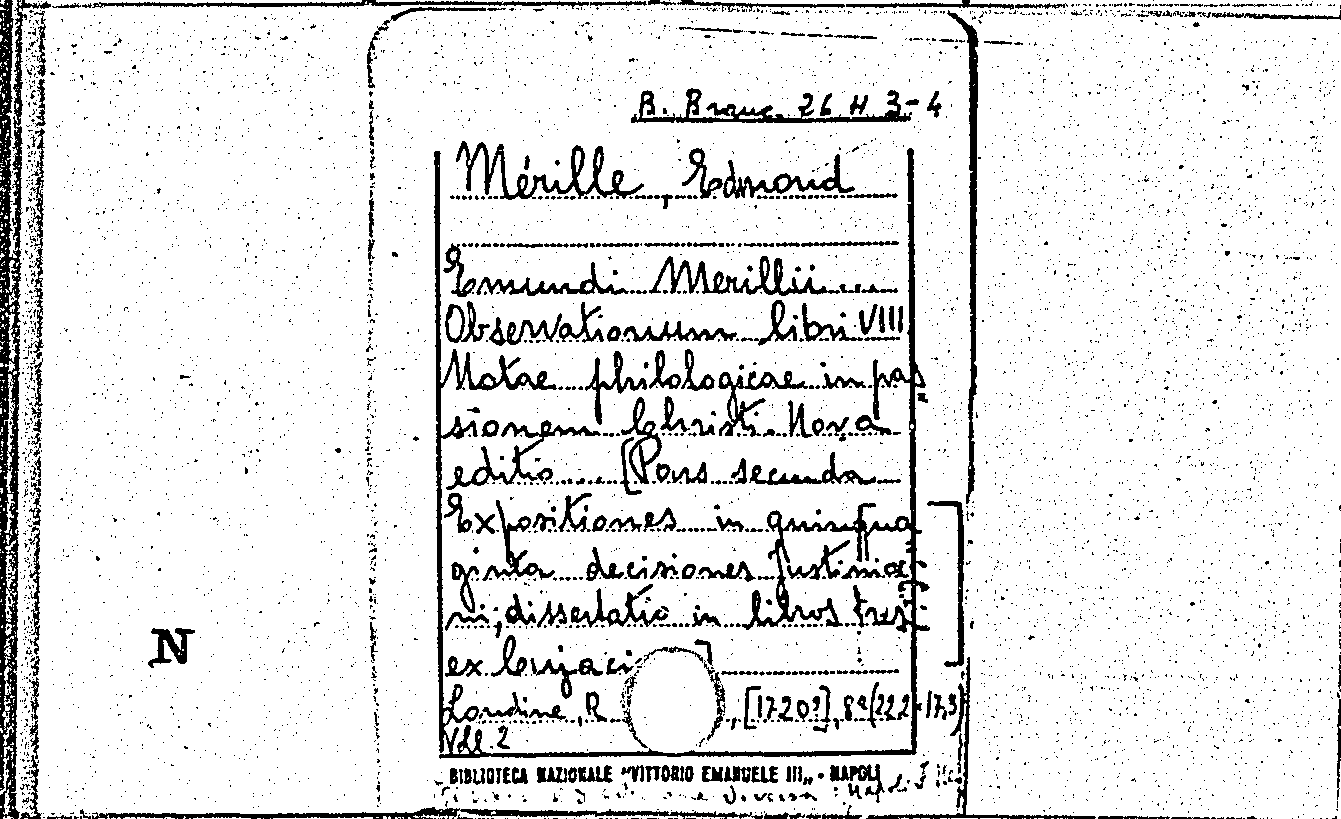 B. Branc. 26 H 3-4
Mérille, Edmond
Emundi Merillii....
Observationum libri VIII
Notae philologicae in pas
sionem Christi. Nova
editio.... [Pars secunda
Expositiones in quinqua
ginta decisiones Justinia
ni; dissertatio in libros tres
ex Cujaci ]
Londine, R , [1720?], 8º (22,2×17,3)
Vol. 2
N
BIBLIOTECA NAZIONALE "VITTORIO EMANUELE III„ - NAPOLI